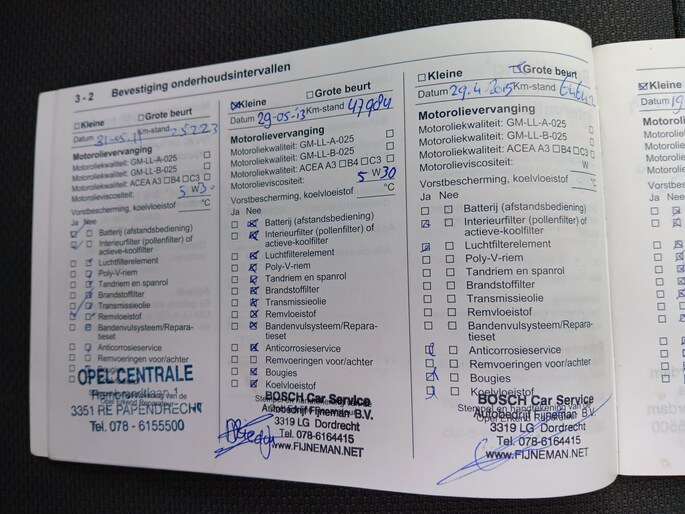 3 - 2 Bevestiging onderhoudsintervallen
Kleine Grote beurt
Datum 31-05-11 Km-stand 25223
Motorolievervanging
Motoroliekwaliteit: GM-LL-A-025
Motoroliekwaliteit: GM-LL-B-025
Motoroliekwaliteit: ACEA A3 B4 C3
Motorolieviscositeit: 5 W30
Vorstbescherming, koelvloeistof °C
Ja Nee
Batterij (afstandsbediening)
Interieurfilter (pollenfilter) of
actieve-koolfilter
Luchtfilterelement
Poly-V-riem
Tandriem en spanrol
Brandstoffilter
Transmissieolie
Remvloeistof
Bandenvulsysteem/Repara-
tieset
Anticorrosieservice
Remvoeringen voor/achter
Bougies
OPEL CENTRALE
3351 RE PAPENDRECHT
Tel. 078 - 6155500
Kleine Grote beurt
Datum 29-05-13 Km-stand 47984
Motorolievervanging
Motoroliekwaliteit: GM-LL-A-025
Motoroliekwaliteit: GM-LL-B-025
Motoroliekwaliteit: ACEA A3 B4 C3
Motorolieviscositeit: 5 W30
Vorstbescherming, koelvloeistof °C
Ja Nee
Batterij (afstandsbediening)
Interieurfilter (pollenfilter) of
actieve-koolfilter
Luchtfilterelement
Poly-V-riem
Tandriem en spanrol
Brandstoffilter
Transmissieolie
Remvloeistof
Bandenvulsysteem/Repara-
tieset
Anticorrosieservice
Remvoeringen voor/achter
Bougies
Koelvloeistof
BOSCH Car Service
Autobedrijf Fijneman B.V.
3319 LG Dordrecht
Tel. 078-6164415
www.FIJNEMAN.NET
Kleine Grote beurt
Datum 29.4.2015 Km-stand
Motorolievervanging
Motoroliekwaliteit: GM-LL-A-025
Motoroliekwaliteit: GM-LL-B-025
Motoroliekwaliteit: ACEA A3 B4 C3
Motorolieviscositeit: W
Vorstbescherming, koelvloeistof °C
Ja Nee
Batterij (afstandsbediening)
Interieurfilter (pollenfilter) of
actieve-koolfilter
Luchtfilterelement
Poly-V-riem
Tandriem en spanrol
Brandstoffilter
Transmissieolie
Remvloeistof
Bandenvulsysteem/Repara-
tieset
Anticorrosieservice
Remvoeringen voor/achter
Bougies
Koelvloeistof
BOSCH Car Service
Stempel en handtekening van de
Autobedrijf Fijneman B.V.
3319 LG Dordrecht
Tel. 078-6164415
www.FIJNEMAN.NET
Kleine
Datum
Ja Nee